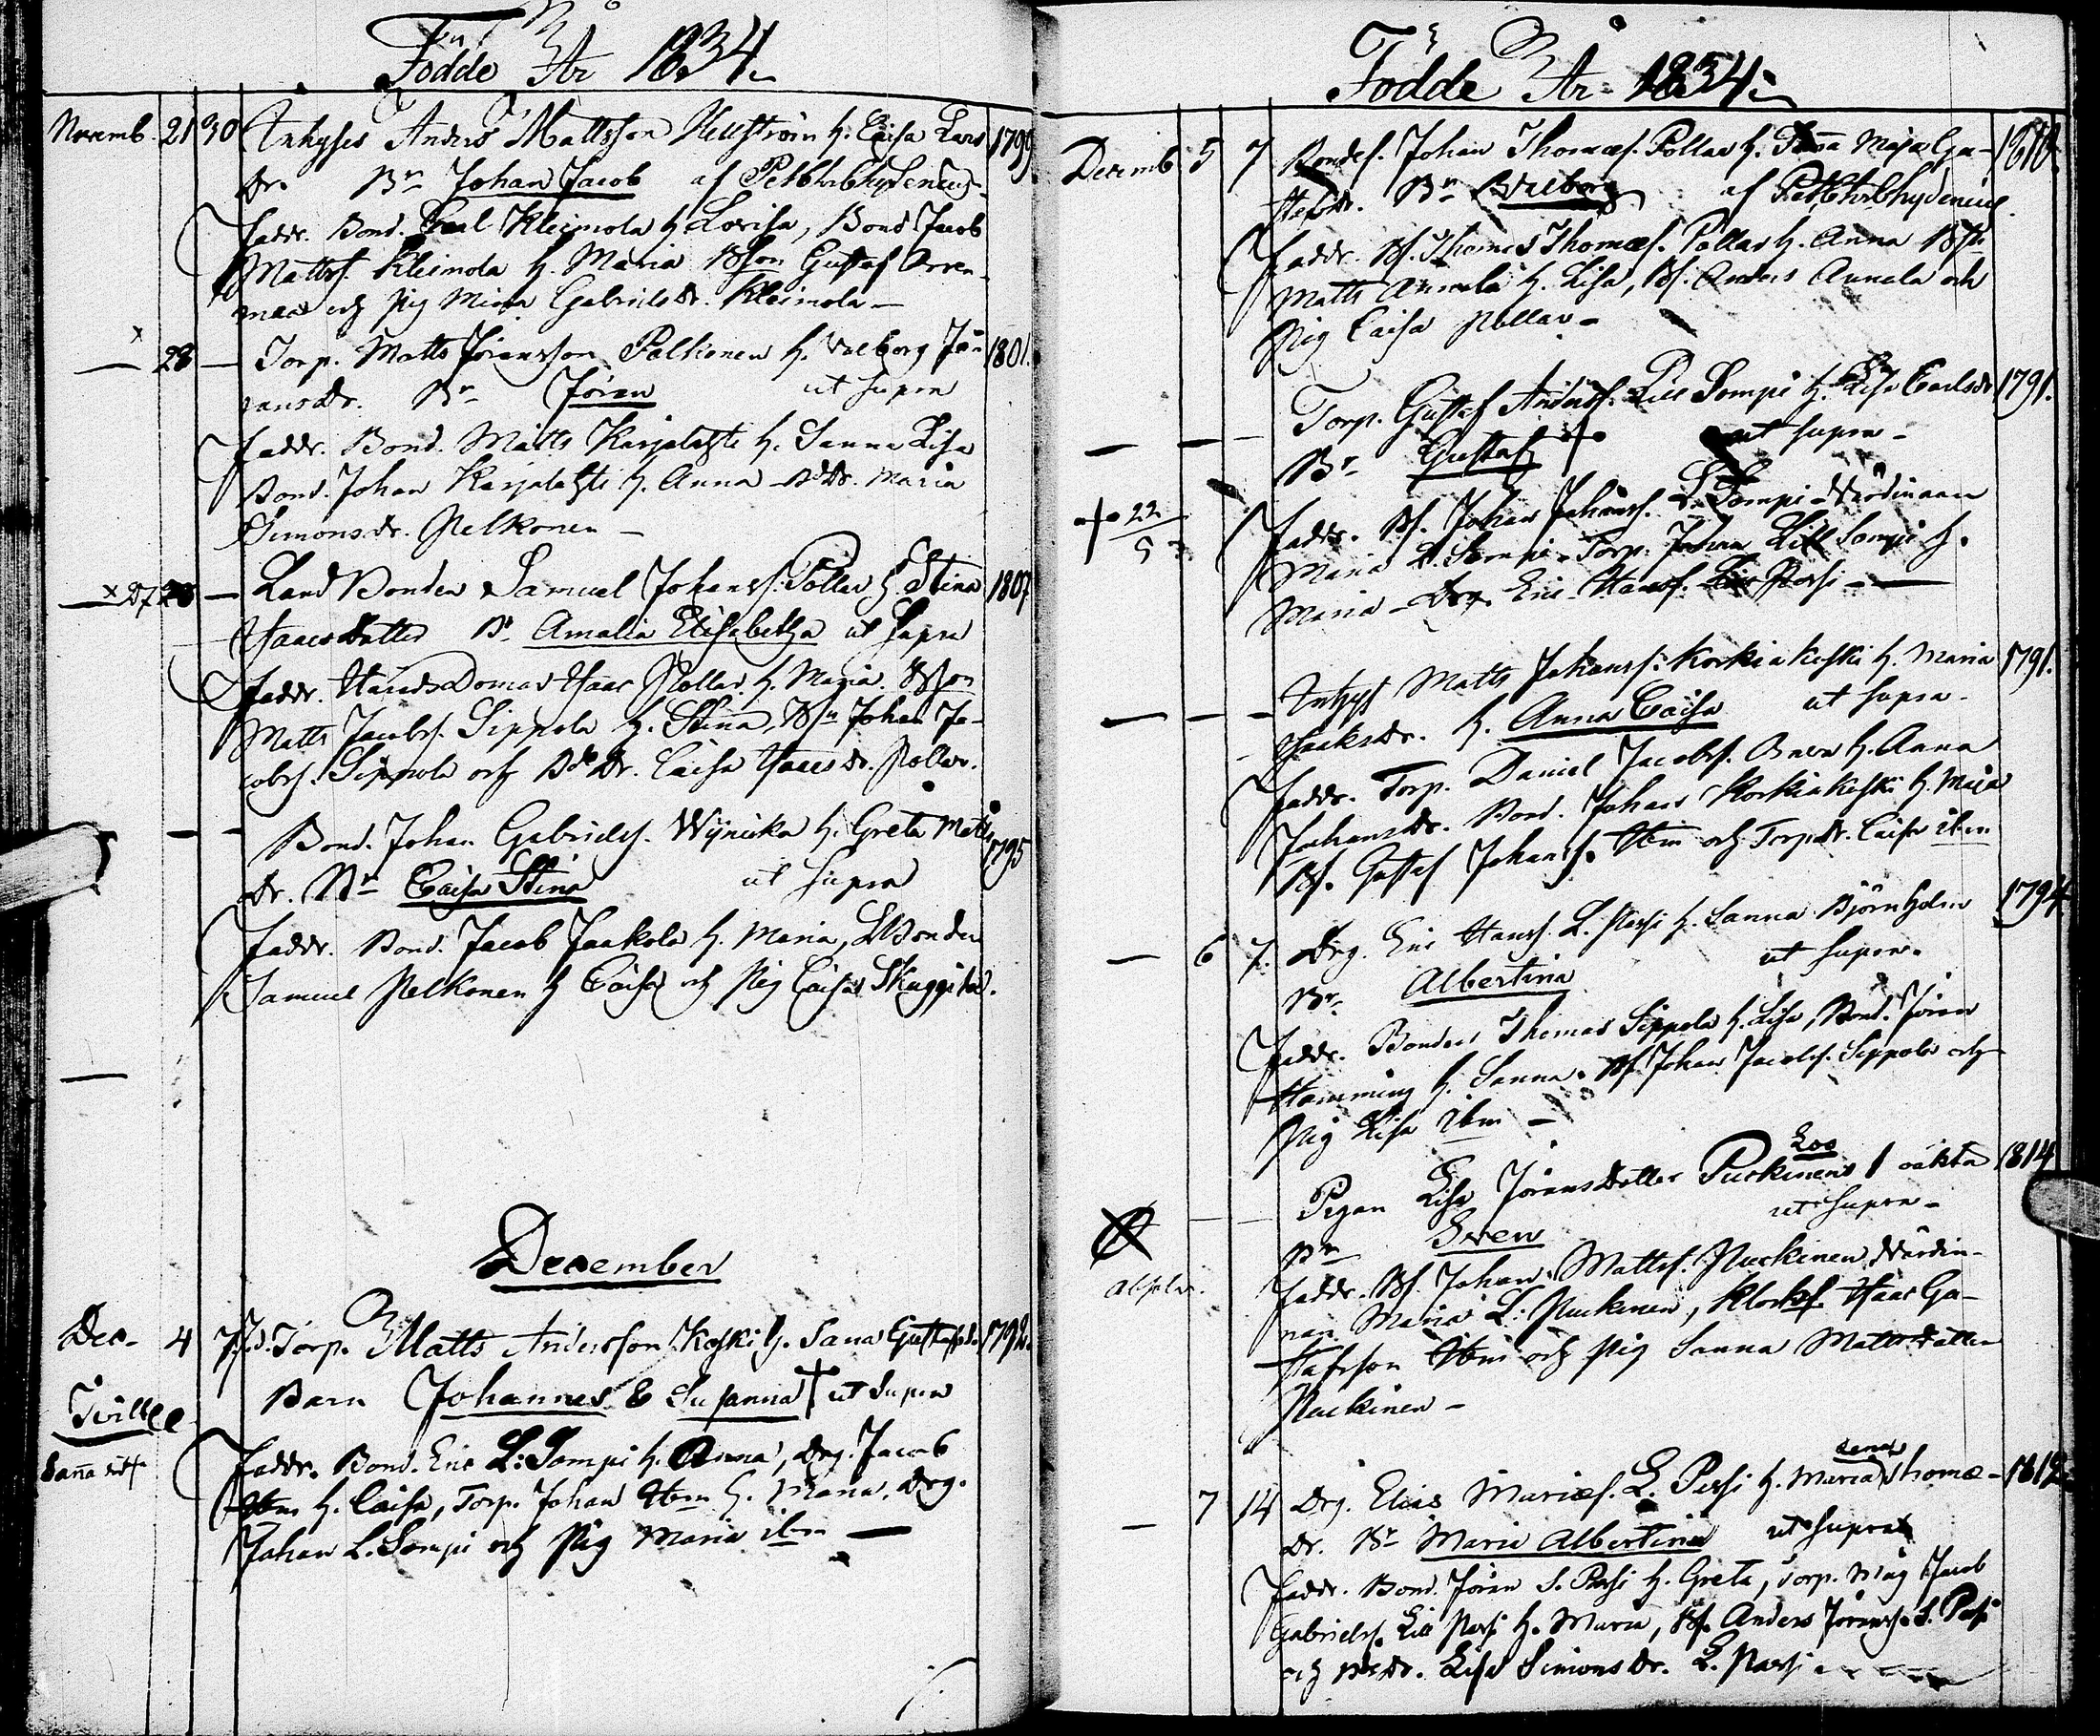 Födde År 1834.
Novemb. 21 30 Inhyses Anders Mattsson Hellström h. Caisa Lars 1799
Dr. Bn Johan Jacob af
faddr. Bond. Carl Kleimola h. Lovisa, Bond Jacob
Mattss. Kleimola h. Maria Bson Gustaf
och Pig Gabrielsdr. Kleimola –
x
— 28 — Torp. Matts Jöransson Palkonen h. Valborg Jö- 1801.
ransdr. Bn Jöran ut supra
faddr. Bond. Matts Karjalahti h. Sanna Lisa
Bond. Johan Karjalahti h. Anna Maria
Simonsdr. Pelkonen –
x 27 28 — Land Bonden Samuel Johanss. Pollar h. Stina 1807
Isaacsdotter Bn Amalia Elisabetha ut Supra
faddr. Isaac Pollar h. Maria. Bson
Matts Jacobss. Sippola h. Stina, Bsn Johan Ja-
cobss. Sippola och Bdr. Caisa Isacsdr. Pollar.
— — Bond. Johan Gabrielss. h. Greta Matts 1795
Dr. Bn Caisa Stina ut supra
faddr. Bond. Jacob Jaakola h. Maria, LBonden
Samuel Pelkonen h Caisa och Pig Caisa
—
December
Dec. 4 7 Torp. Matts Andersson Koski h. Sana Gustafsdr. 1792.
Barn Johannes & Susanna † ut Supra
Tvill
Sana
faddr. Bond. Eric L: Sompi h. Anna, Drg. Jacob
Ibm h. Caisa, Torp. Johan Ibm h. Maria, Drg.
Johan L. Sompi och Pig Maria ibm —
Födde År 1834.
Decemb 5 7 Bondes. Johan Thomæs. Pollar h. Maja Gu- 1810.
stafsdr. Bn Walborg af
faddr. Bs. Thomas Thomæs. Pollar h. Anna
Matts Annala h. Lisa, Bs. Anders Annala och
Pig Caisa Pollar –
— — — Torp. Gustaf Anderss. Lill Sompi h. Lisa Carlsdr 1791.
Bn Gustaf † ut supra –
† 22
5
faddr. Bs. Johan Johanss. L. Sompi Värdinnan
Maria L. Sompi. Torp. Johan Lill Sompi h.
Maria – Drg. Eric Hanss. Passi –
— — — Inhys Matts Johanss. Korkiakoski h. Maria 1791.
Isaksdr. h. Anna Caisa ut supra –
faddr. Torp. Daniel Jacobss. h. Anna
Johansdr. Bond. Johan Korkiakoski h. Maja
Bs. Gustaf Johanss. Ibm och Torpdr. Caisa ibm
— 6 7. Drg. Eric Hanss. L. Passi h. Sanna Björnholm 1794
Bn. Albertina ut supra.
faddr. Bonden Thomas Sippola h. Lisa, Bond. Jöran
Hamming h. Sanna. Bs. Johan Jacobss. Sippola och
Pig Lisa ibm –
Pigan Lisa Jöransdotter Puckinens oäkta 1814
Bn Swen ut supra –
Absolv.
faddr. Bs. Johan Mattss. Puckinen, Värdin-
nan Maria L: Puckinen, Klocks. Isaac Gu-
stafsson Ibm och Pig Sanna Mattsdotter
Puckinen –
— 7 14 Drg. Elias Mariæs. L. Passi h. Maria Lena Thomæ- 1812
Dr. Bn Maria Albertina ut supra
faddr. Bond. Jöran S. Passi h. Greta, Torp. Måg Jacob
Gabrielss. Lill Passi h. Maria, Bs. Anders Jöranss. S. Passi
och Bdr. Lisa Simonsdr. L. Passi